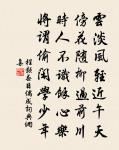 雲淡風輕近午天
傍花隨柳過前川
時人不識余心樂
將謂偷閑學少年
程顥春日偶成詞典網
集